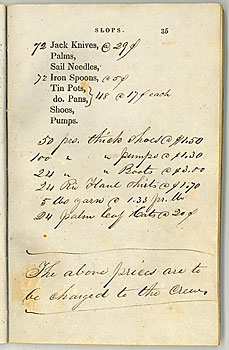 SLOPS. 35
72 Jack Knives, @ 29¢
Palms,
Sail Needles,
72 Iron Spoons, @ 5¢
Tin Pots, } 48 @ 17¢ each
do. Pans,
Shoes,
Pumps.
50 prs. thick Shoes @ $1.50
100 " " Pumps @ $1.30
24 " " Boots @ $3.00
24 Red Flanl Shirts @ $1.70
5 lbs yarn @ 1.33 pr. lb
24 Palm leaf Hats @ 20¢
The above prices are to
be charged to the Crew.